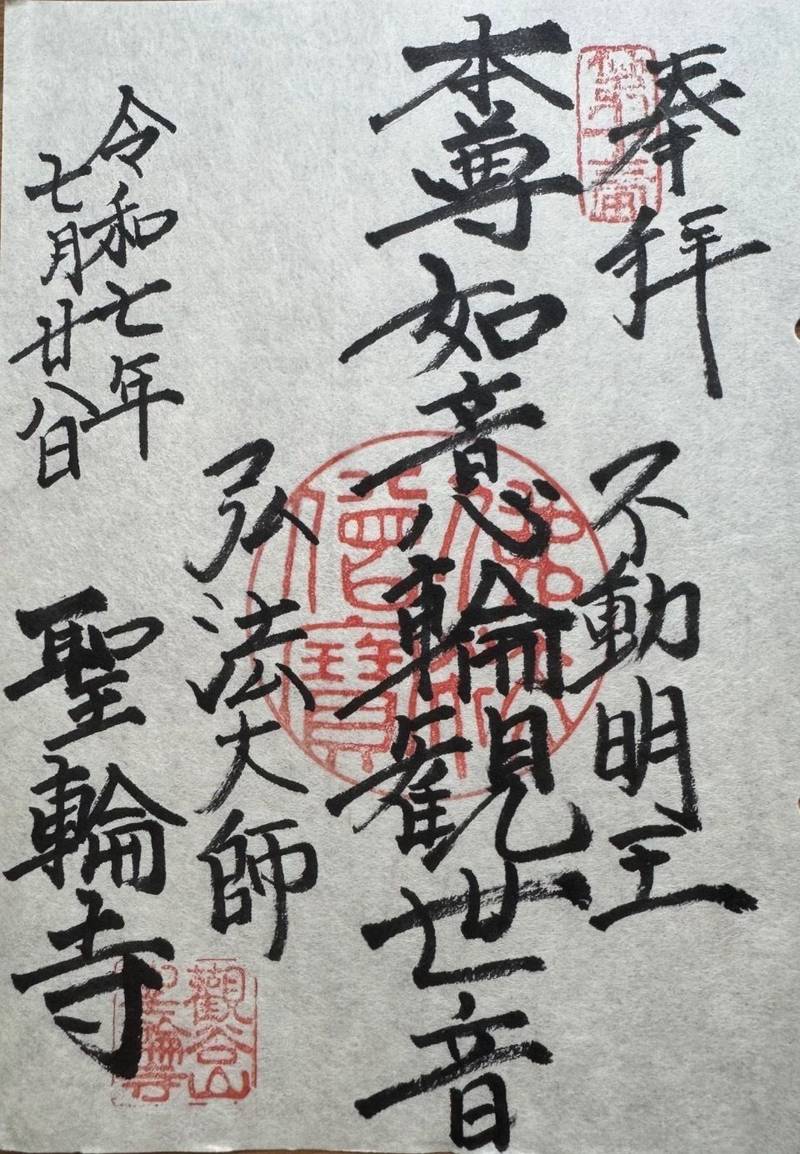 奉拝
第十番
不動明王
本尊如意輪観世音
佛法僧寶
弘法大師
令和七年
七月廿八日
聖輪寺
觀谷山
聖輪寺